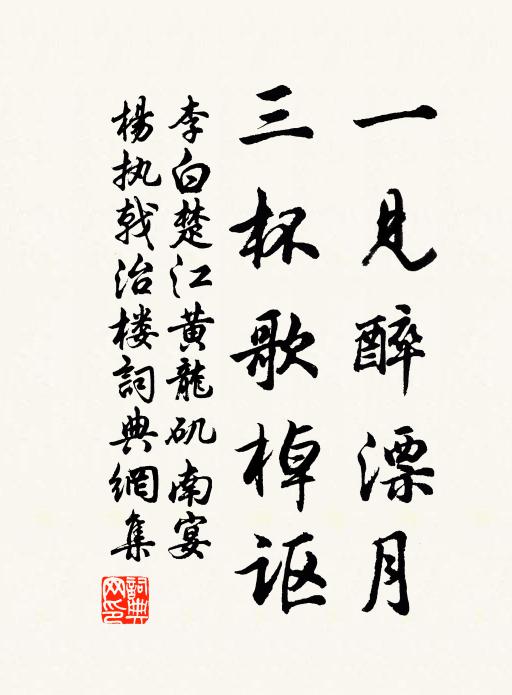 一见醉漂月
三杯歌棹讴
李白楚江黄龍矶南宴
楊执戟治楼詞典網集
詞典网印